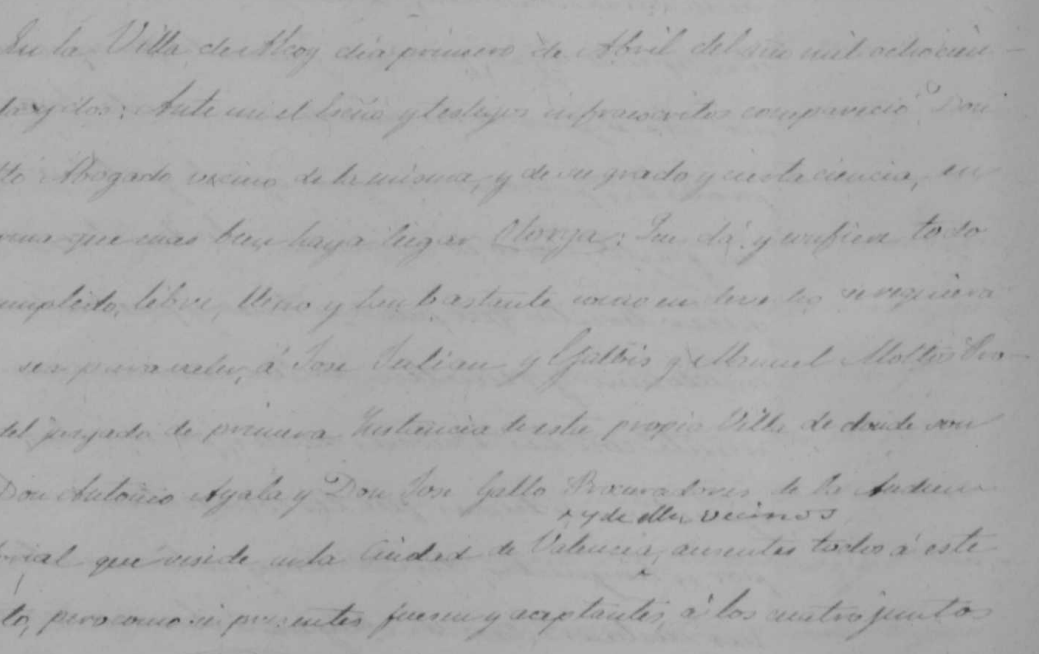 En la Villa de Alcoy dia primero de Abril del año mil ochocien-
y dos: Ante mi el Essño y testigos infrascritos comparecio Don
Abogado vecino de la misma, y de su grado y cierta ciencia, en
que mas bien haya lugar Otorga: Que dá y confiere todo
cumplido, libre, lleno y bastante como en derecho se requiera
para valer, á Jose Julian y Galbis y Manuel Moltós Pro-
del juzgado de primera Instancia de esta propia Villa de donde son
Don Antonio Ayala y Don Jose Gallo Procuradores de la Audien
x y de ella vecinos
que reside en la Ciudad de Valencia, ausentes todos á este
pero como si presentes fuesen y aceptantes, á los cuatro juntos